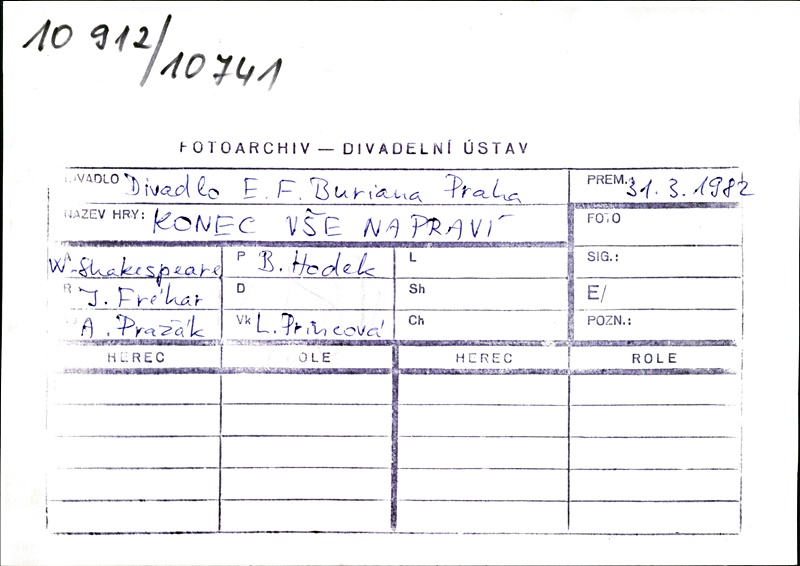 10 912/10741
FOTOARCHIV — DIVADELNÍ ÚSTAV
DIVADLO Divadlo E. F. Buriana Praha PREM. 31. 3. 1982
NÁZEV HRY: KONEC VŠE NAPRAVÍ FOTO
A W. Shakespeare P B. Hodek L SIG.:
R J. Fréhar D Sh E/
A. Pražák Vk L. Princová Ch POZN.:
HEREC ROLE HEREC ROLE